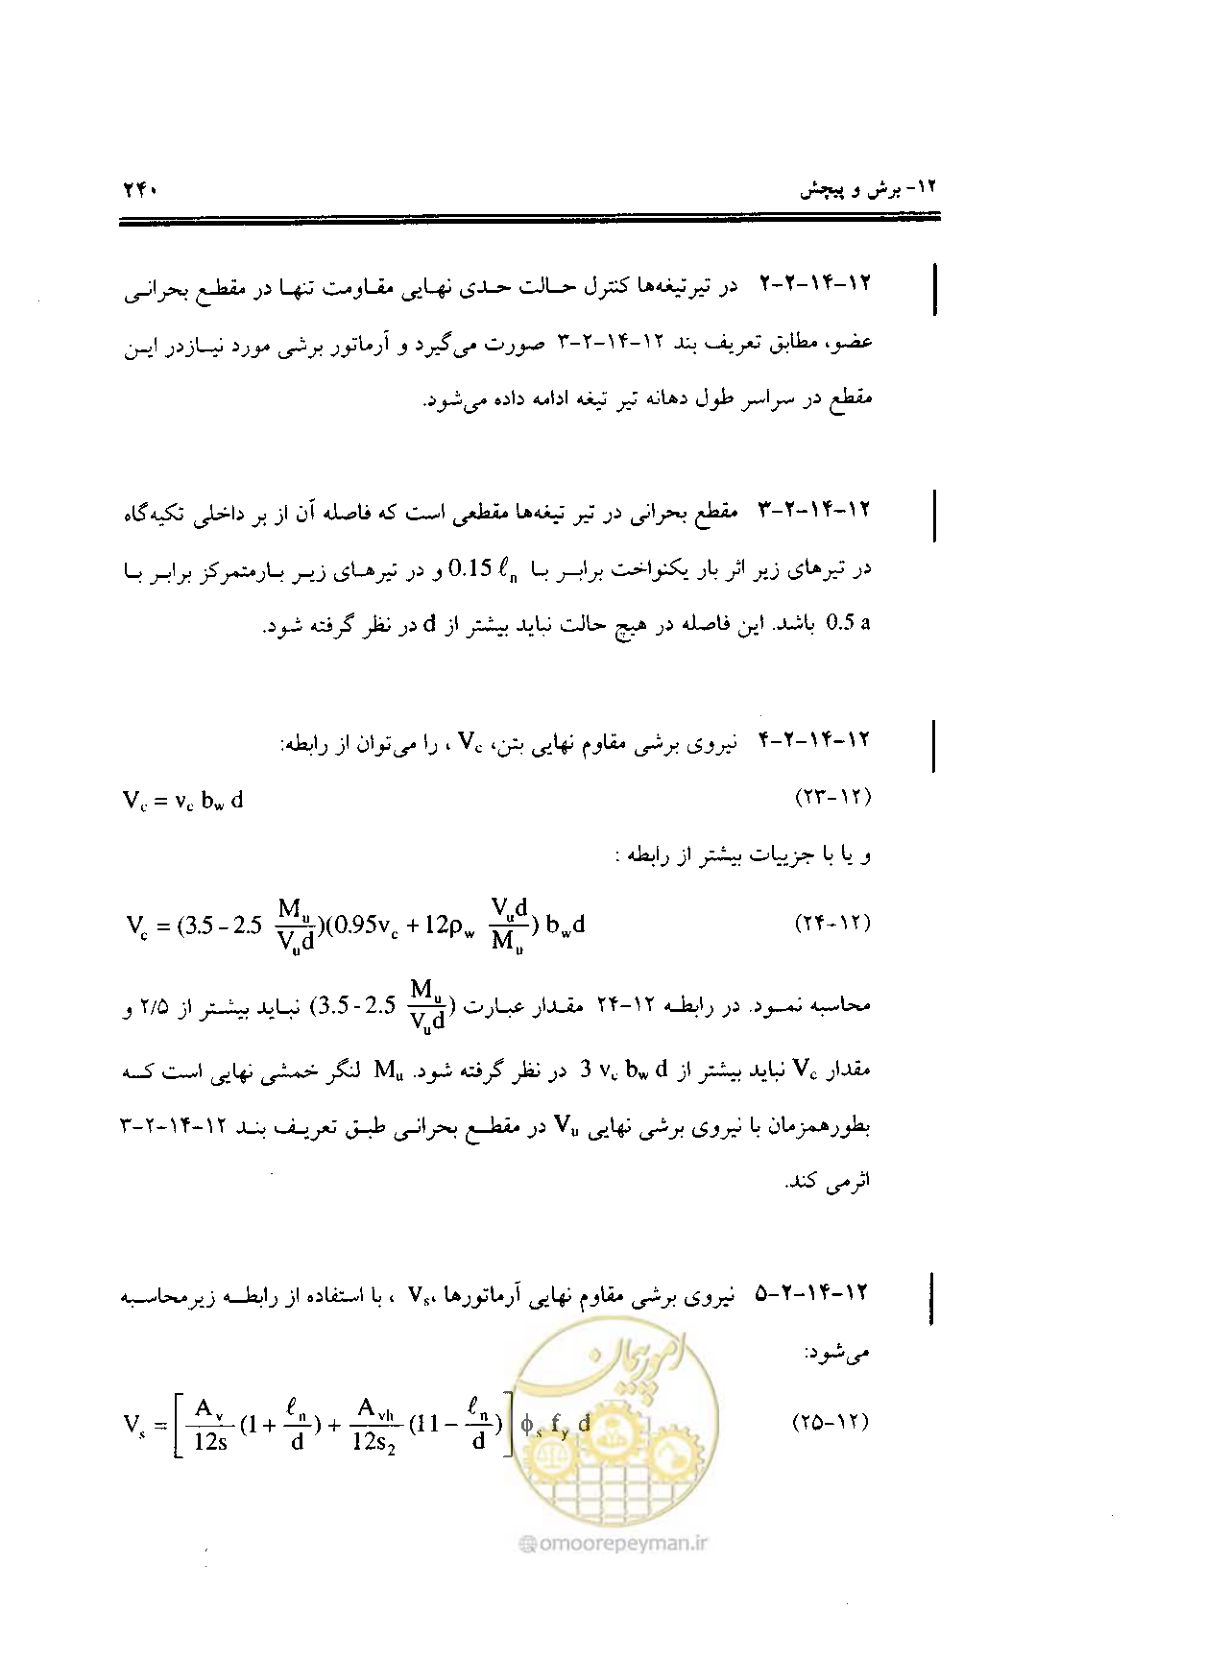 ۱۲- برش و پیچش ۲۴۰
۱۲-۱۴-۲-۲ در تیرتیغه‌ها کنترل حالت حدی نهایی مقاومت تنها در مقطع بحرانی
عضو، مطابق تعریف بند ۱۲-۱۴-۲-۳ صورت می‌گیرد و آرماتور برشی مورد نیازدر این
مقطع در سراسر طول دهانه تیر تیغه ادامه داده می‌شود.
۱۲-۱۴-۲-۳ مقطع بحرانی در تیر تیغه‌ها مقطعی است که فاصله آن از بر داخلی تکیه‌گاه
در تیرهای زیر اثر بار یکنواخت برابر با 0.15 ℓn و در تیرهای زیر بارمتمرکز برابر با
0.5 a باشد. این فاصله در هیچ حالت نباید بیشتر از d در نظر گرفته شود.
۱۲-۱۴-۲-۴ نیروی برشی مقاوم نهایی بتن، Vc ، را می‌توان از رابطه:
Vc = vc bw d (۲۳-۱۲)
و یا با جزییات بیشتر از رابطه :
Vc = (3.5 - 2.5 Mu/Vud)(0.95vc + 12ρw Vud/Mu) bwd (۲۴-۱۲)
محاسبه نمود. در رابطه ۱۲-۲۴ مقدار عبارت (3.5 - 2.5 Mu/Vud) نباید بیشتر از ۲/۵ و
مقدار Vc نباید بیشتر از 3 vc bw d در نظر گرفته شود. Mu لنگر خمشی نهایی است که
بطورهمزمان با نیروی برشی نهایی Vu در مقطع بحرانی طبق تعریف بند ۱۲-۱۴-۲-۳
اثرمی کند.
۱۲-۱۴-۲-۵ نیروی برشی مقاوم نهایی آرماتورها ،Vs ، با استفاده از رابطه زیرمحاسبه
می‌شود:
Vs = [Av/12s (1 + ℓn/d) + Avh/12s2 (11 - ℓn/d)] ϕs fy d (۲۵-۱۲)
امور پیمان
@omoorepeyman.ir